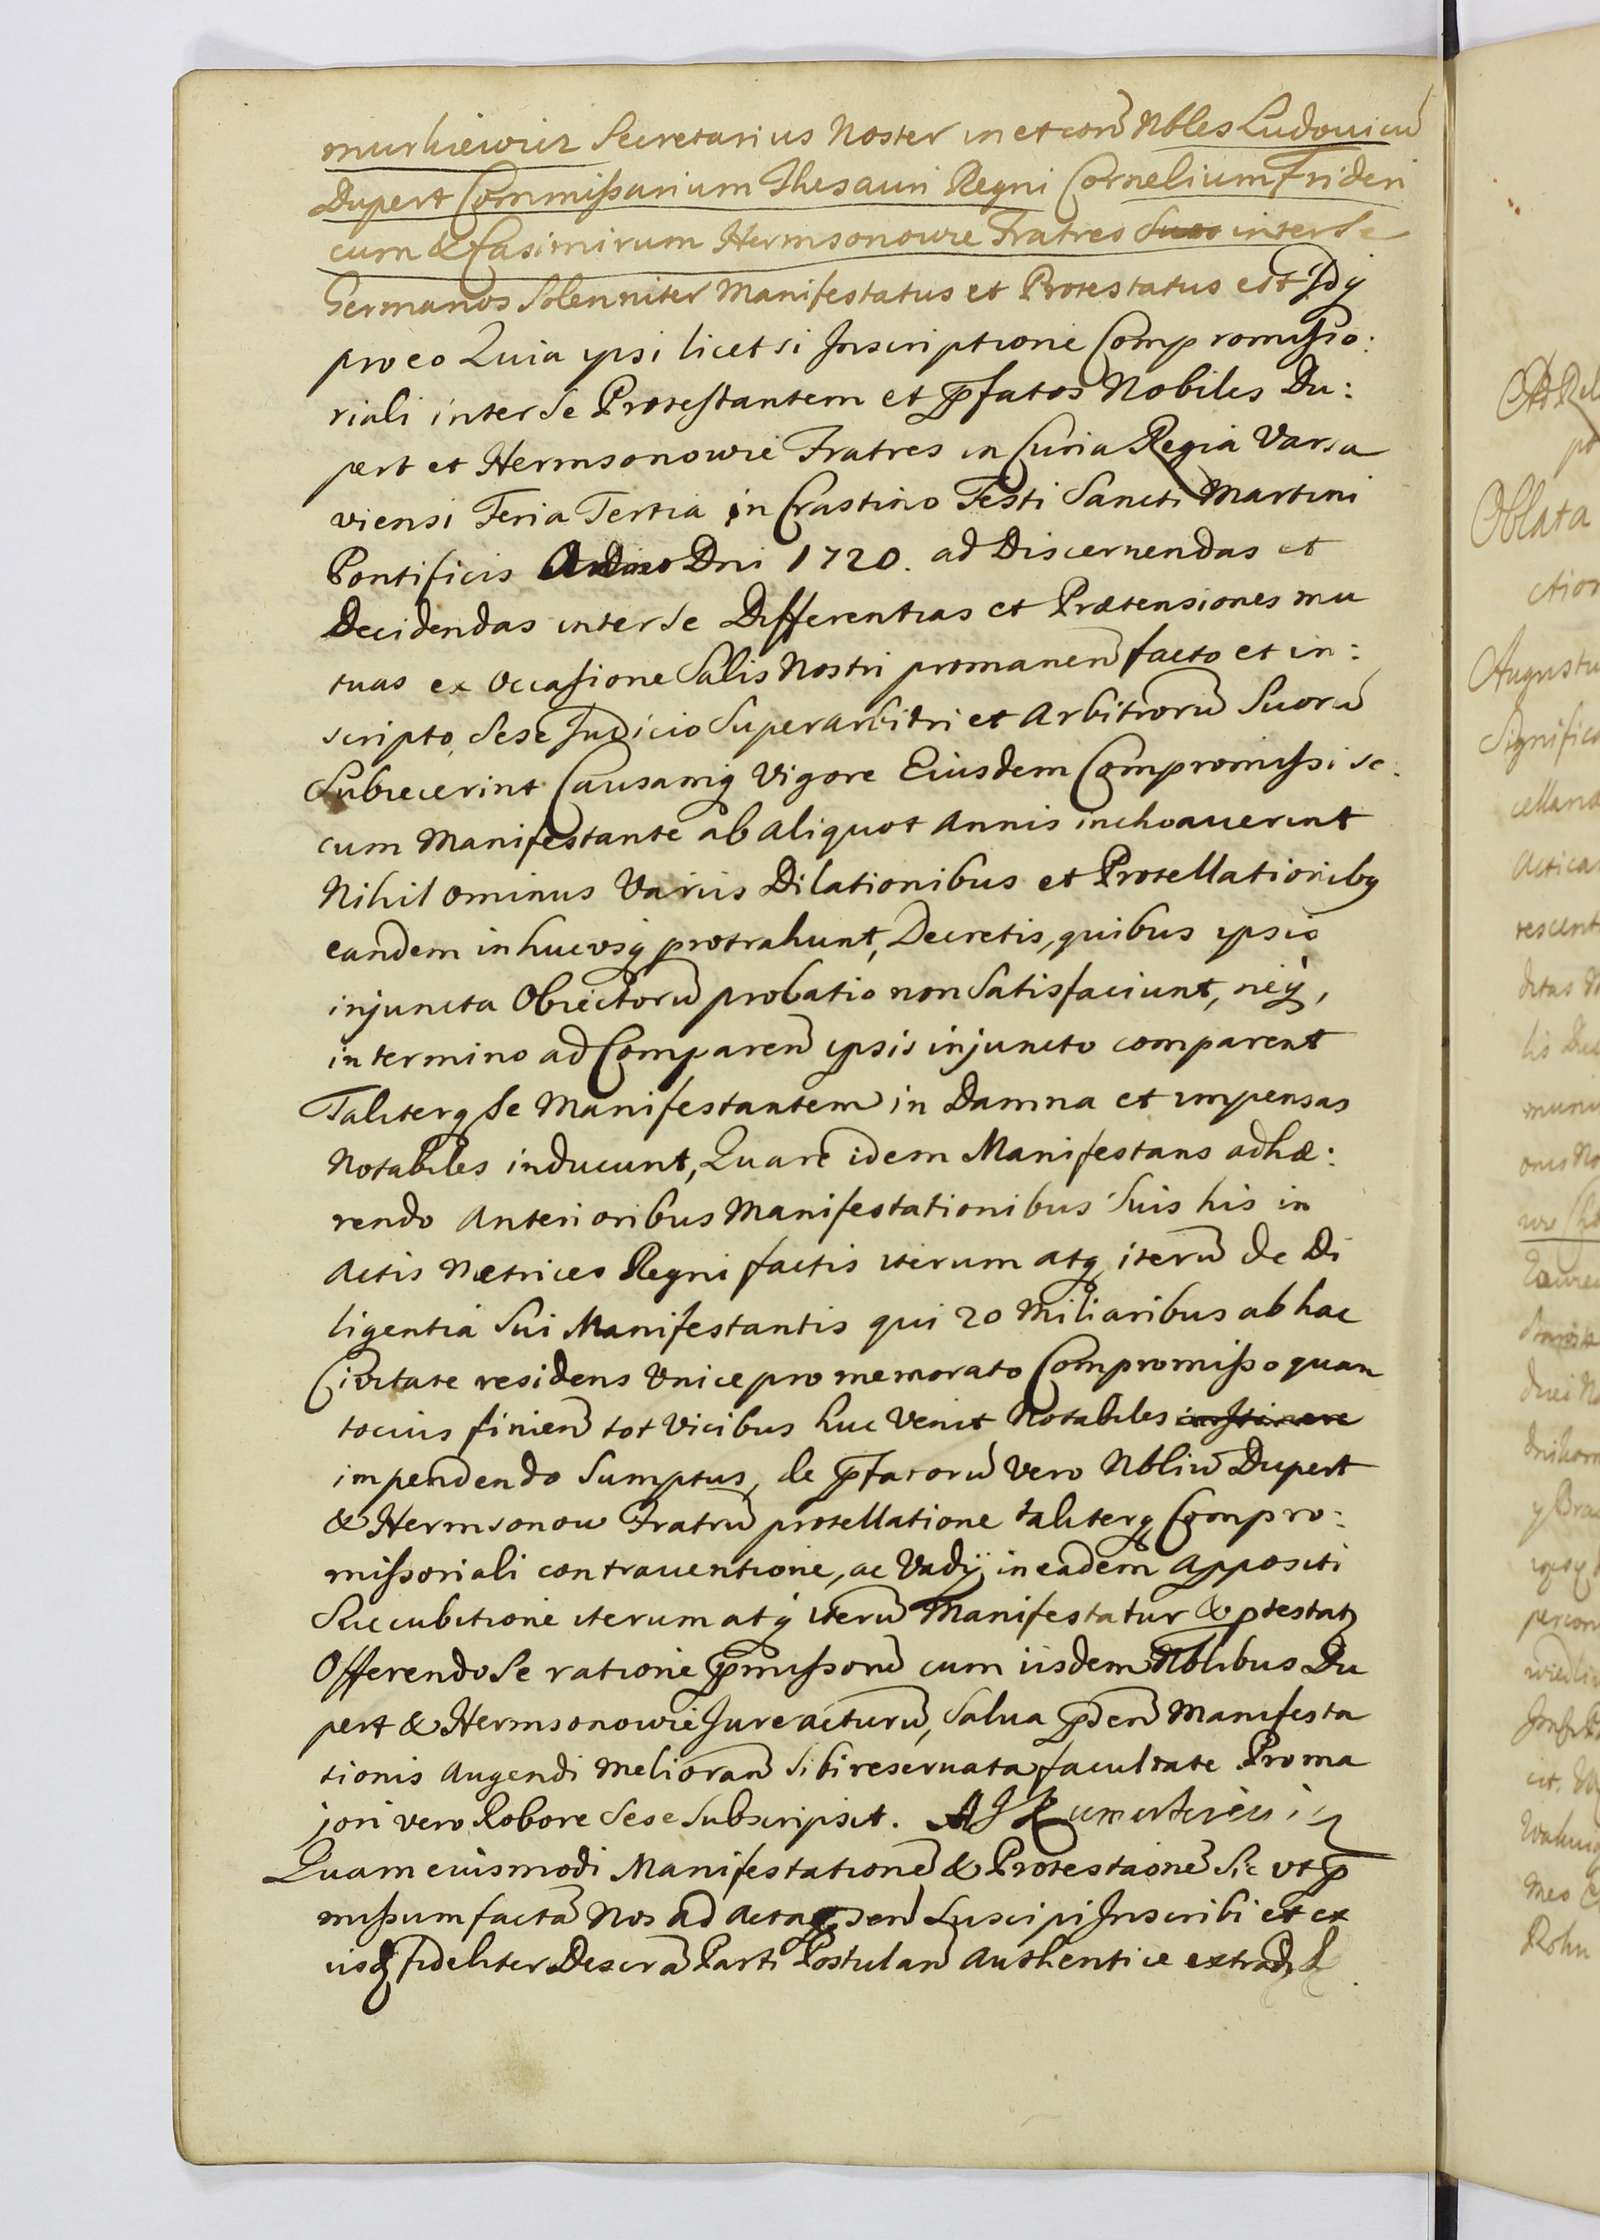 murkiewicz Secretarius Noster in et corã Nbles Ludovicũ
Dupert Commissarium Thesauri Regni Cornelium Frideri
cum & Casimirum Hermsonowie Fratres Suos inter Se
Germanos Solenniter Manifestatus et Protestatus est Idq
pro eo Quia ipsi licet si Inscriptione Compromisso:
riali inter Se Protestantem et p̃fatos Nobiles Du:
pert et Hermsonowie Fratres in Curia Regia Varsa
viensi Feria Tertia in Crastino Festi Sancti Martini
Pontificis Anno Dni 1720. ad Discernendas et
Decidendas inter Se Differentias et Prætensiones mu
tuas ex Occasione Salis Nostri promaneñ facto et in:
scripto Sese Judicio Superarbitri et Arbitrorũ Suorũ
Subiecerint Causamq Vigore Eiusdem Compromissi se:
cum Manifestante ab aliquot Annis inchoauerint
Nihil ominus Variis Dilationibus et Protellationibq
eandem in hucusq protrahunt, Decretis, quibus ipsis
injuncta Obiectorũ probatio non Satisfaciunt, neq,
in termino ad Compareñ ipsis injuncto comparent
Taliterq Se Manifestantem in Damna et impensas
Notabiles inducunt, Quare idem Manifestans adhæ:
rendo Anterioribus Manifestationibus Suis his in
Actis Metrices Regni factis iterum atq iterũ de Di
ligentia Sui Manifestantis qui 20 Miliaribus ab hac
Civitate residens Unice pro memorato Compromisso quan
tocius finieñ tot Vicibus huc Venit Notabiles
impendendo Sumptus, de p̃fatorũ vero Nbliũ Dupert
& Hermsonow Fratrũ protellatione taliterq Compro:
missoriali contrauentione, ac Vadij in eadem Appositi
Succubitione iterum atq iterũ Manifestatur & ptestatz
Offerendo Se ratione p̃missorũ cum iisdem Nblibus Du
pert & Hermsonowie Jure acturũ, Salua p̃señ Manifesta
tionis Augendi Meliorañ Sibi reseruata facultate Pro ma
jori vero Robore Sese Subscripsit. A J Kumurkiewicz
Quam eiusmodi Manifestationẽ & Protestãonẽ Sic ut p̃
missum factã Nos ad Acta p̃señ Suscipi Inscribi et ex
iisdq fideliter Descrã Parti Postulañ Authentice extradi
Oblata
ction
Augustu
Significa
cellaria